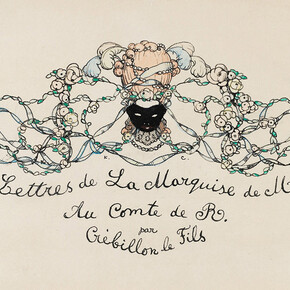 K. C.
Lettres de La Marquise de M
Au Comte de R.
par
Crébillon le Fils